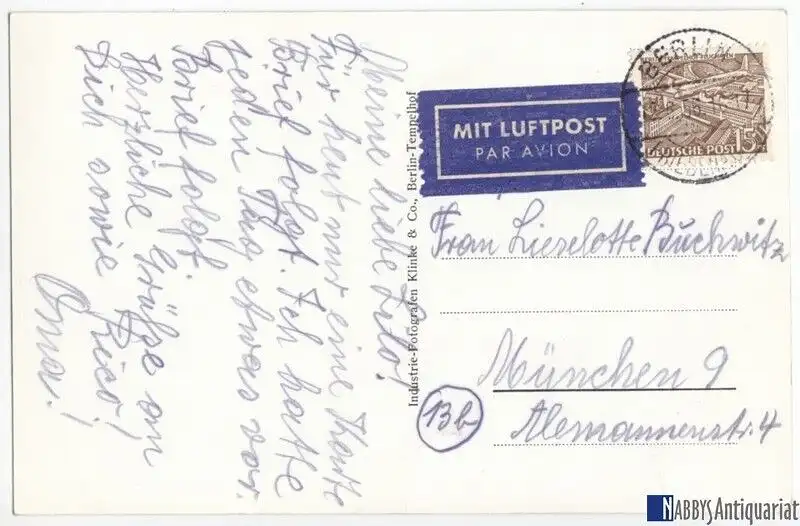 Meine liebe Lilo!
Für heut nur eine Karte
Brief folgt. Ich hatte
jeden Tag etwas vor.
Brief folgt
Herzliche Grüße an
Dich sowie Rico!
Oma!
Industrie-Fotografen Klinke & Co., Berlin-Tempelhof
MIT LUFTPOST
PAR AVION
BERLIN
DEUTSCHE POST 15
Frau Lieselotte Buchwitz
München 9
13b
Alemannenstr. 4
NABBYS Antiquariat